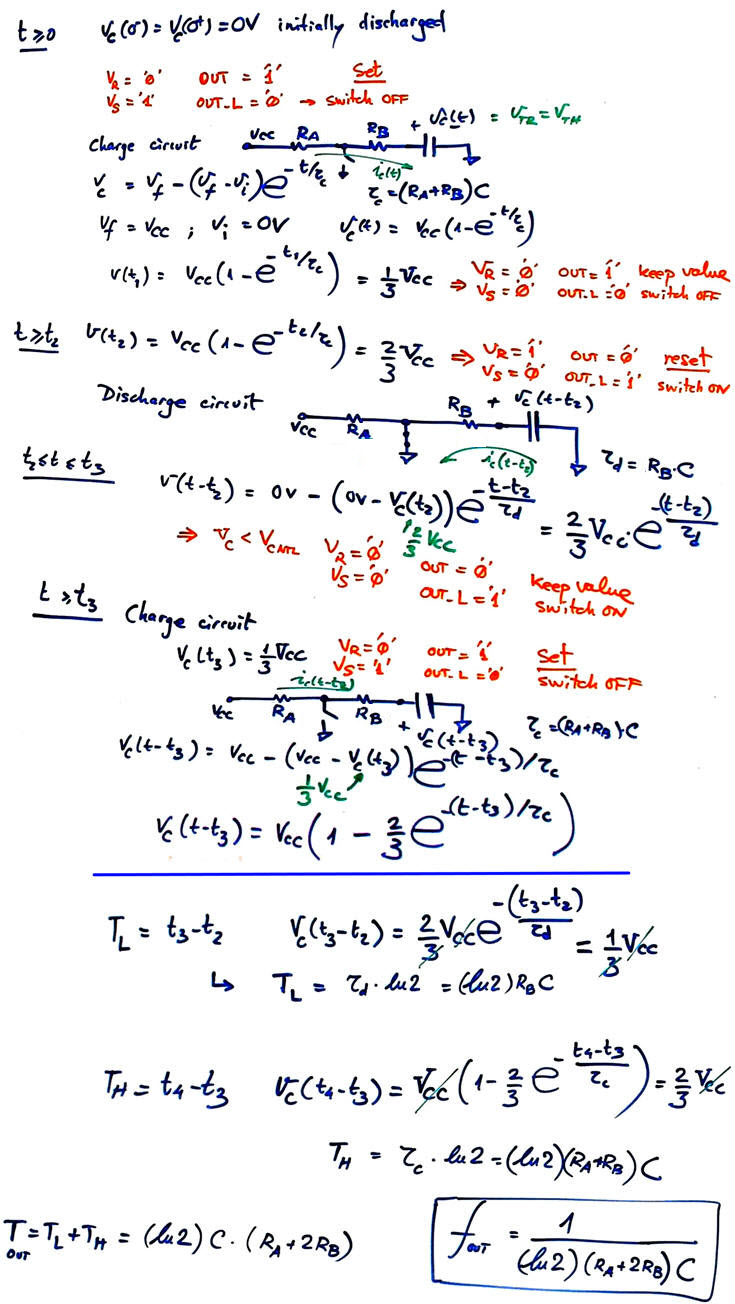 t ≥ 0 Vc(0⁻) = Vc(0⁺) = 0V initially discharged
VR = '0' OUT = '1' Set
VS = '1' OUT_L = '0' → switch OFF
Charge circuit Vcc RA RB + Vc(t) = VTR = VTH
ic(t)
Vc = Vf - (Vf - Vi) e^(-t/τc) τc = (RA+RB)C
Vf = Vcc ; Vi = 0V Vc(t) = Vcc (1 - e^(-t/τc))
V(t1) = Vcc (1 - e^(-t1/τc)) = 1/3 Vcc ⇒ VR = '0' OUT = '1' keep value
VS = '0' OUT_L = '0' switch OFF
t ≥ t2 V(t2) = Vcc (1 - e^(-t2/τc)) = 2/3 Vcc ⇒ VR = '1' OUT = '0' reset
VS = '0' OUT_L = '1' switch ON
Discharge circuit Vcc RA RB + Vc(t-t2)
ic(t-t2) τd = RB·C
t2 ≤ t ≤ t3 V(t-t2) = 0V - (0V - Vc(t2)) e^(-(t-t2)/τd) = 2/3 Vcc · e^(-(t-t2)/τd)
2/3 Vcc
⇒ Vc < VCNTL VR = '0' OUT = '0' keep value
VS = '0' OUT_L = '1' switch ON
t ≥ t3 Charge circuit
Vc(t3) = 1/3 Vcc VR = '0' OUT = '1' Set
VS = '1' OUT_L = '0' switch OFF
ic(t-t2)
Vcc RA RB + Vc(t-t3) τc = (RA+RB)·C
Vc(t-t3) = Vcc - (Vcc - Vc(t3)) e^(-(t-t3)/τc)
1/3 Vcc
Vc(t-t3) = Vcc (1 - 2/3 e^(-(t-t3)/τc))
TL = t3-t2 Vc(t3-t2) = 2/3 Vcc e^(-(t3-t2)/τd) = 1/3 Vcc
↳ TL = τd · ln2 = (ln2) RB C
TH = t4-t3 Vc(t4-t3) = Vcc (1 - 2/3 e^(-(t4-t3)/τc)) = 2/3 Vcc
TH = τc · ln2 = (ln2)(RA+RB) C
TOUT = TL + TH = (ln2) C · (RA + 2RB)
fOUT = 1 / ((ln2)(RA+2RB) C)